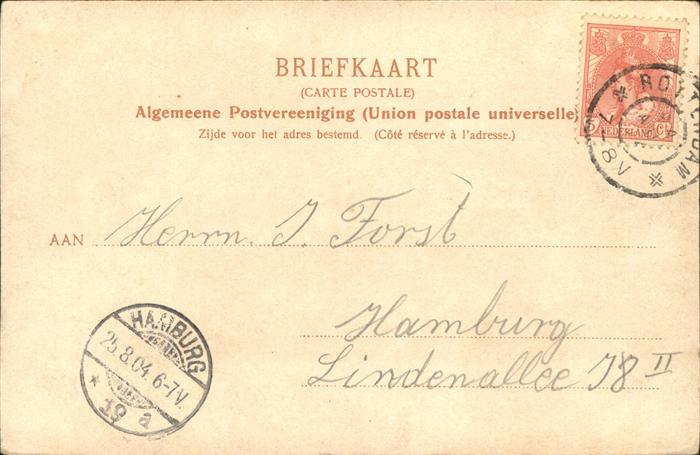 BRIEFKAART
(CARTE POSTALE)
Algemeene Postvereeniging (Union postale universelle)
Zijde voor het adres bestemd. (Côté réservé à l'adresse.)
NEDERLAND
ROTTERDAM
7-8V
AAN Herrn. J. Forst
Hamburg
Lindenallee 78 II
HAMBURG
25.8.04. 6-7V.
* 19 a